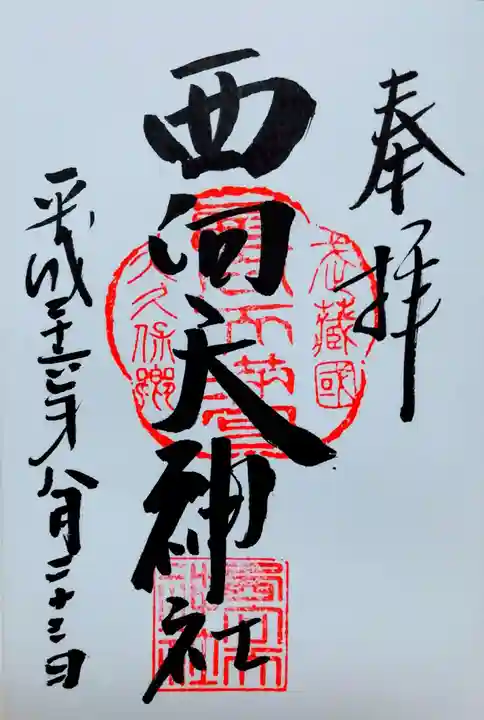 奉拝
西向天神社
平成二十六年八月二十三日
武蔵國
大久保郷